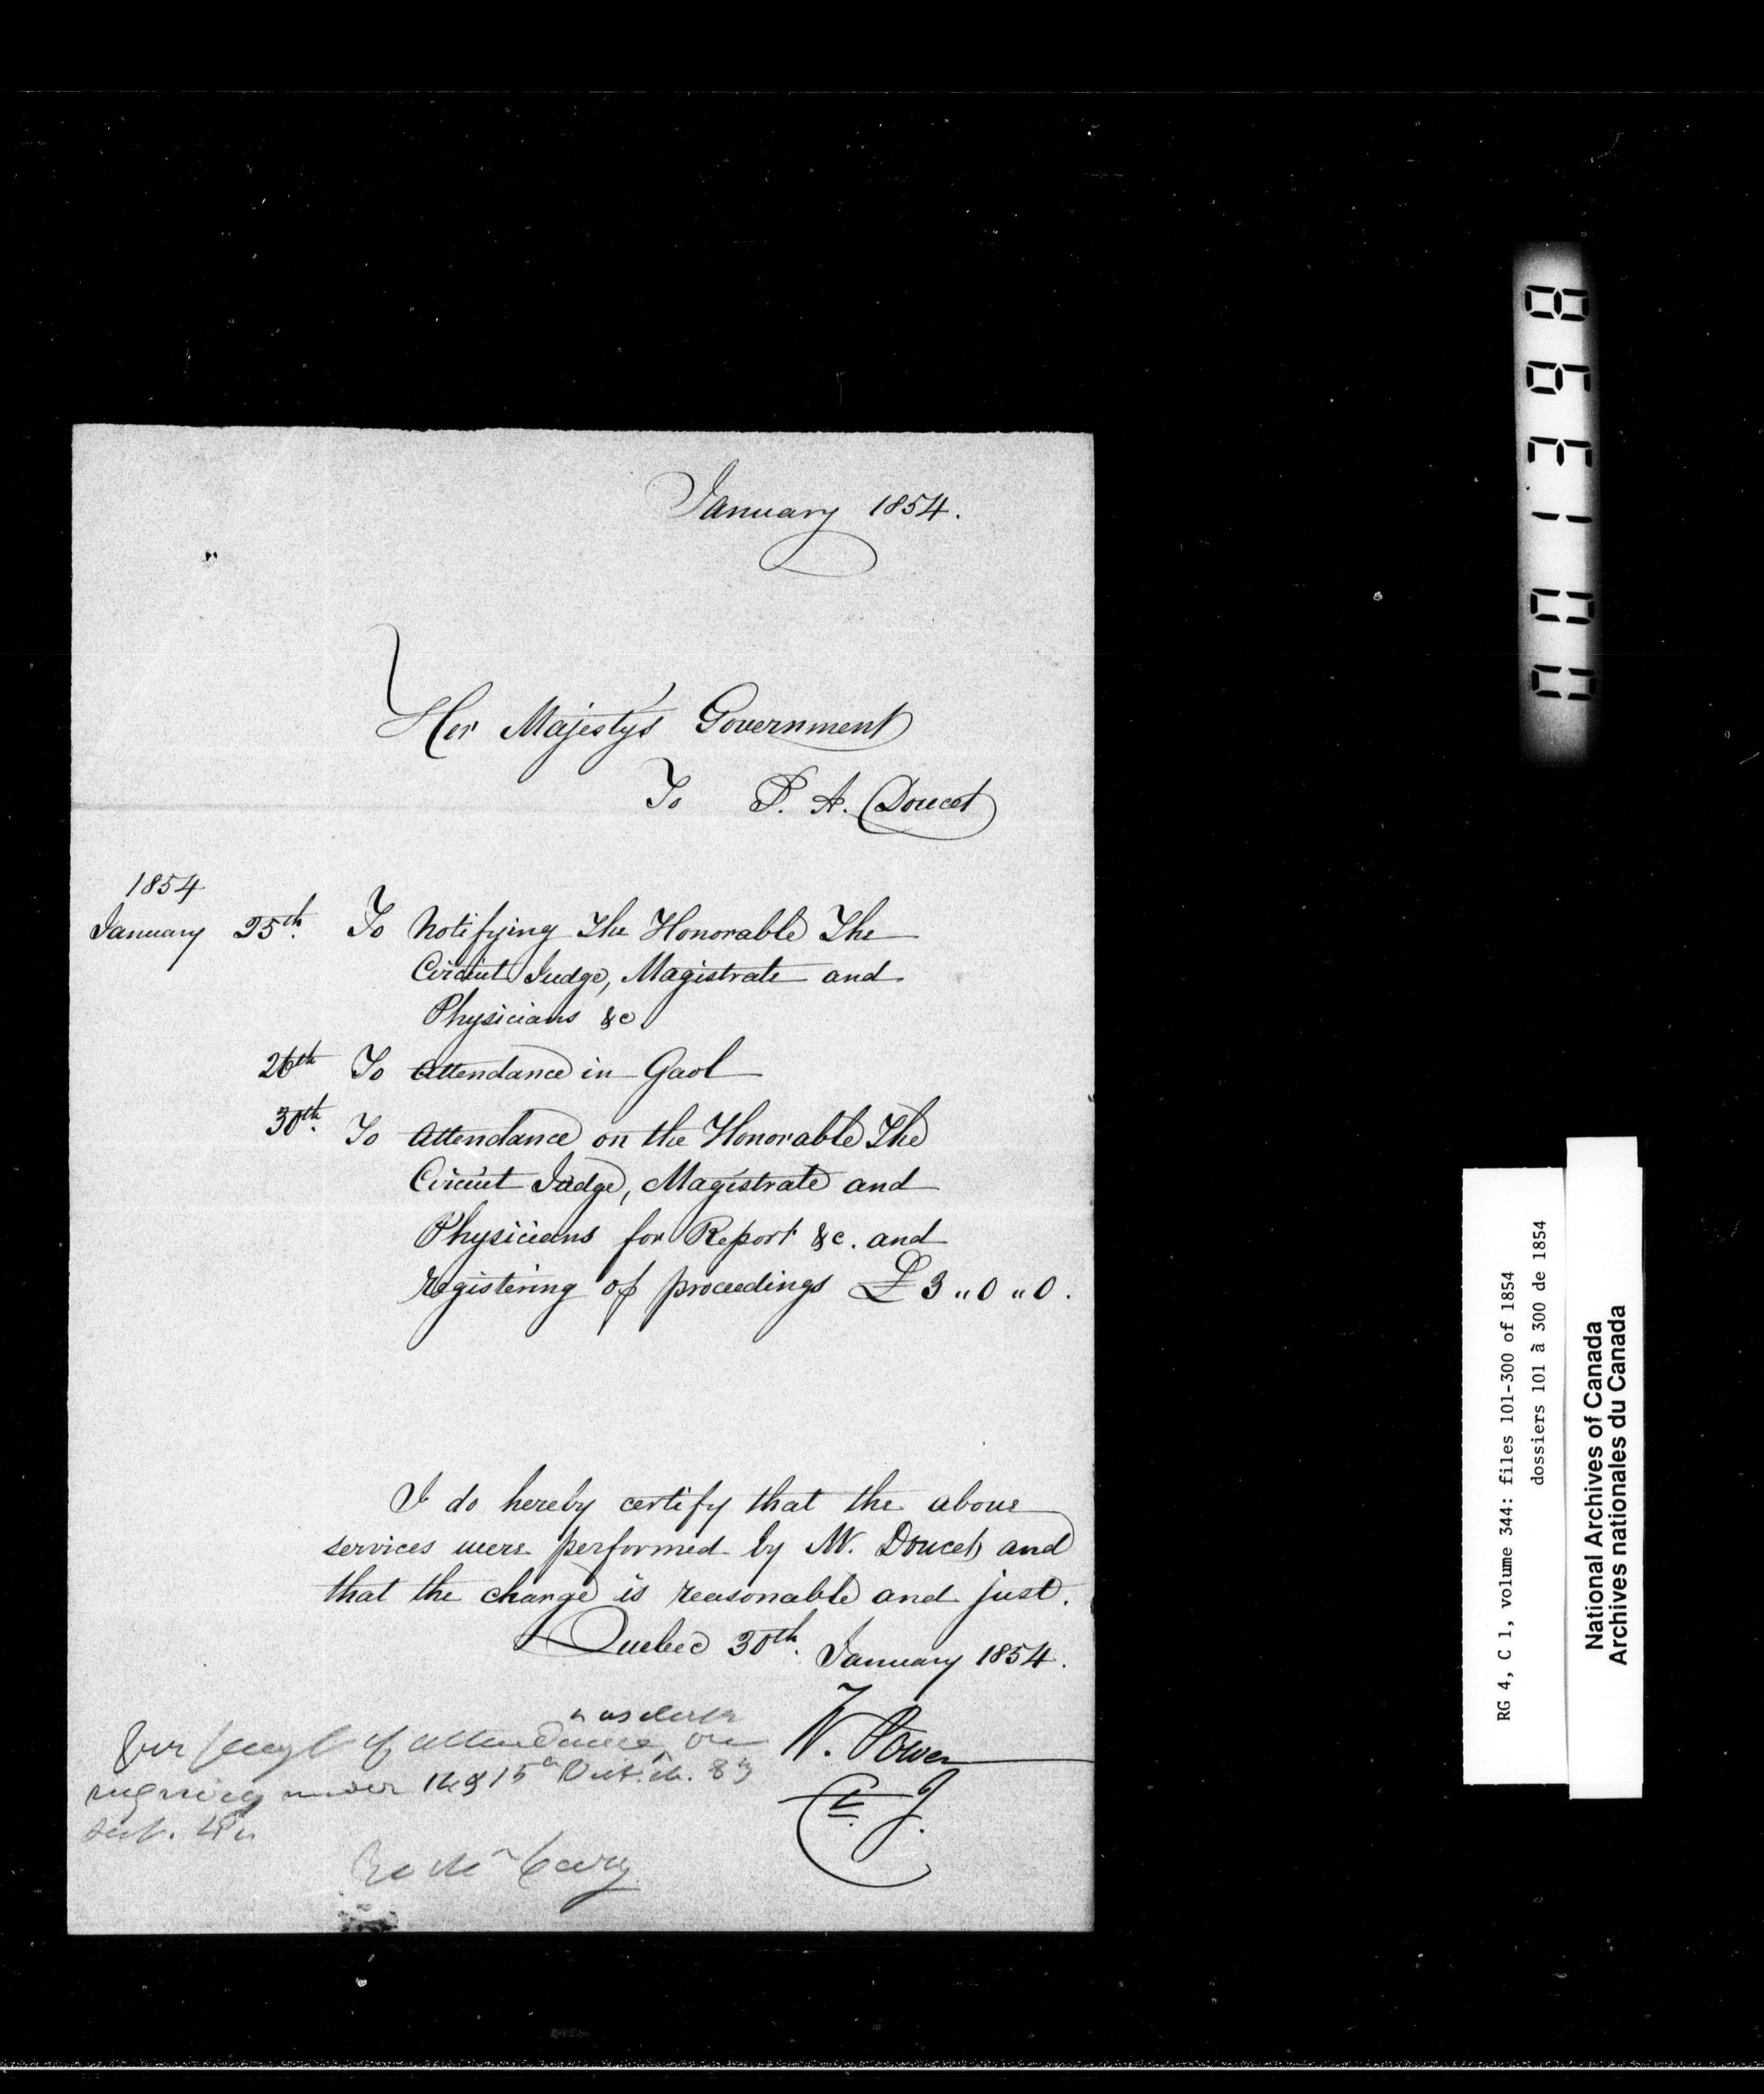 January 1854.
Her Majesty's Government
To P. A. Doucet
1854
January 25th. To Notifying The Honorable The
Circuit Judge, Magistrate and
Physicians &c
26th To Attendance in Gaol
30th. To Attendance on the Honorable The
Circuit Judge, Magistrate and
Physicians for Report &c. and
registering of proceedings £3 „ 0 „ 0.
I do hereby certify that the above
services were performed by Mr. Doucet and
that the charge is reasonable and just.
Quebec 30th. January 1854.
W. Power
C. J.
as clerk
of attendance on
under 14 & 15th Vict. ch. 83
001398
RG 4, C 1, volume 344: files 101-300 of 1854
dossiers 101 à 300 de 1854
National Archives of Canada
Archives nationales du Canada